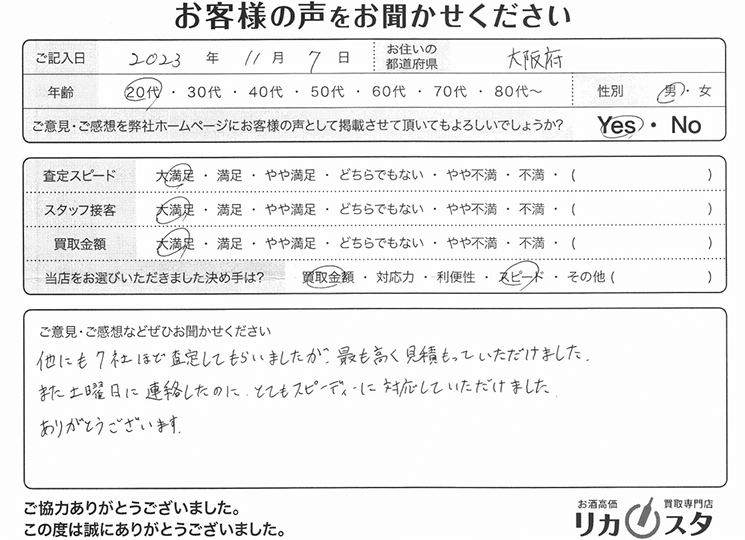 お客様の声をお聞かせください
ご記入日 2023 年 11 月 7 日 お住いの都道府県 大阪府
年齢 20代・30代・40代・50代・60代・70代・80代～ 性別 男・女
ご意見・ご感想を弊社ホームページにお客様の声として掲載させて頂いてもよろしいでしょうか? Yes・No
査定スピード 大満足・満足・やや満足・どちらでもない・やや不満・不満・( )
スタッフ接客 大満足・満足・やや満足・どちらでもない・やや不満・不満・( )
買取金額 大満足・満足・やや満足・どちらでもない・やや不満・不満・( )
当店をお選びいただきました決め手は? 買取金額・対応力・利便性・スピード・その他( )
ご意見・ご感想などぜひお聞かせください
他にも7社ほど査定してもらいましたが、最も高く見積もっていただけました。
また土曜日に連絡したのに、とてもスピーディーに対応していただけました。
ありがとうございます。
ご協力ありがとうございました。
この度は誠にありがとうございました。
お酒高価 買取専門店
リカスタ